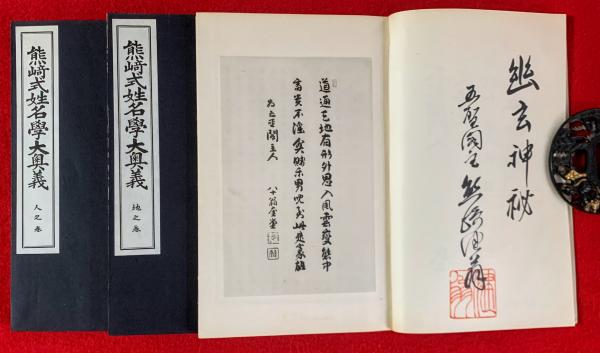 幽玄神秘
五聖閣主熊﨑健翁
道通天地有形外思入風雲變態中
富貴不淫貧賤樂男兒到此是豪雄
為五聖閣主人
八十翁
熊﨑式姓名學大奥義
地之巻
熊﨑式姓名學大奥義
人之巻